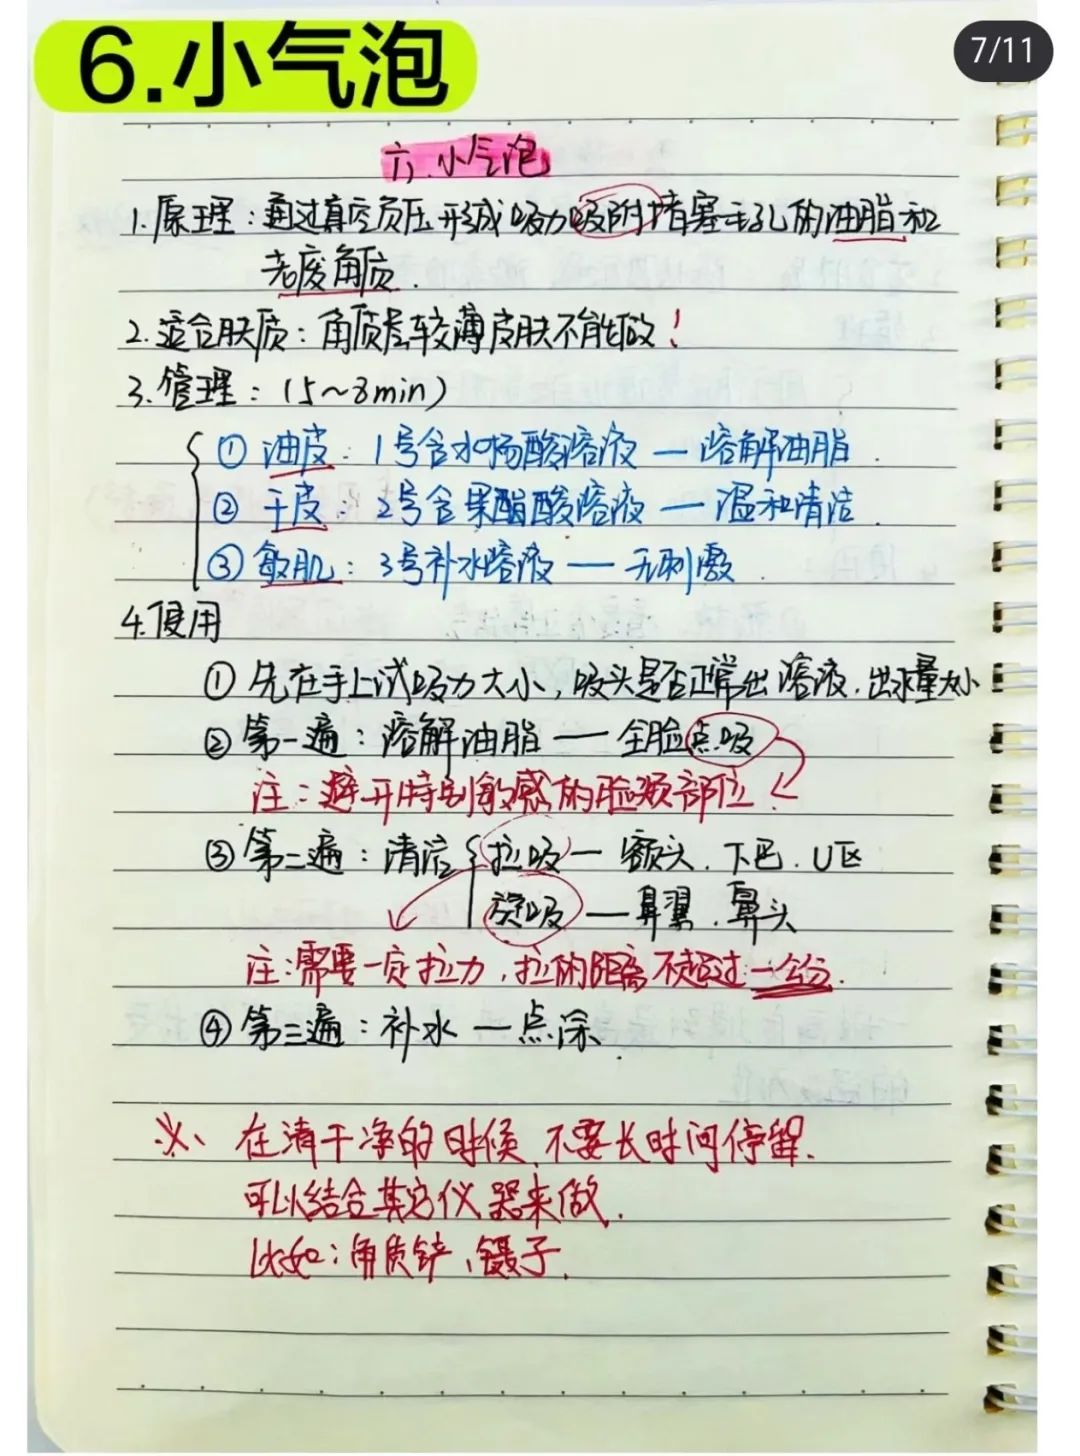 6.小气泡
7/11
六、小气泡
1.原理：通过真空负压形成吸力吸附堵塞毛孔的油脂和
老废角质.
2.适合肤质：角质层较薄皮肤不能做！
3.管理：（5~8min）
① 油皮：1号含水杨酸溶液 — 溶解油脂.
② 干皮：2号含果酸溶液 — 温和清洁.
③ 敏肌：3号补水溶液 — 无刺激.
4.使用
① 先在手上试吸力大小,吸头是否正常出溶液.出水量大小
② 第一遍：溶解油脂 — 全脸点吸
注：避开特别敏感的脸颊部位
③ 第二遍：清洁 { 拉吸 — 额头.下巴.U区
旋吸 — 鼻翼.鼻头
注:需要一定拉力,拉的距离不超过一公分.
④ 第三遍：补水 — 点涂.
※、在清干净的时候,不要长时间停留.
可以结合其它仪器来做.
比如：角质铲、镊子.